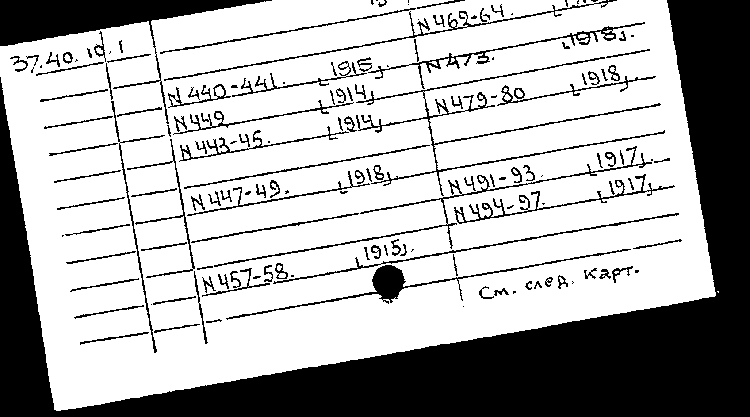 37.40. 10. 1
N 440-441. [1915].
N 449 [1914]
N 443-45. [1914].
N 447-49. [1918].
N 457-58. [1915].
N 462-64.
N 473. [1918].
N 479-80 [1918].
N 491-93 [1917].
N 494-97. [1917].
См. след. карт.